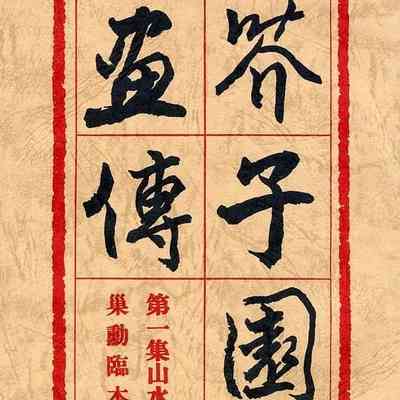 芥子園
畫傳
第一集山水
巢動臨本